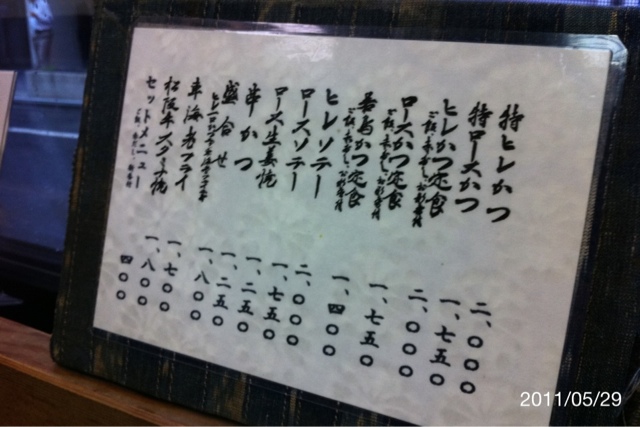 特ヒレかつ 二、〇〇〇
特ロースかつ 一、七五〇
ヒレかつ定食 二、〇〇〇
ご飯、赤だし、お新香付
ロースかつ定食 一、七五〇
ご飯、赤だし、お新香付
若鳥かつ定食 一、四〇〇
ご飯、赤だし、お新香付
ヒレソテー 二、〇〇〇
ロースソテー 一、七五〇
ロース生姜焼 一、二五〇
串かつ 一、二五〇
盛合せ 一、八〇〇
車海老フライ 一、七〇〇
松阪牛スタミナ焼 一、八〇〇
セットメニュー 四〇〇
ご飯、赤だし、新香付
2011/05/29